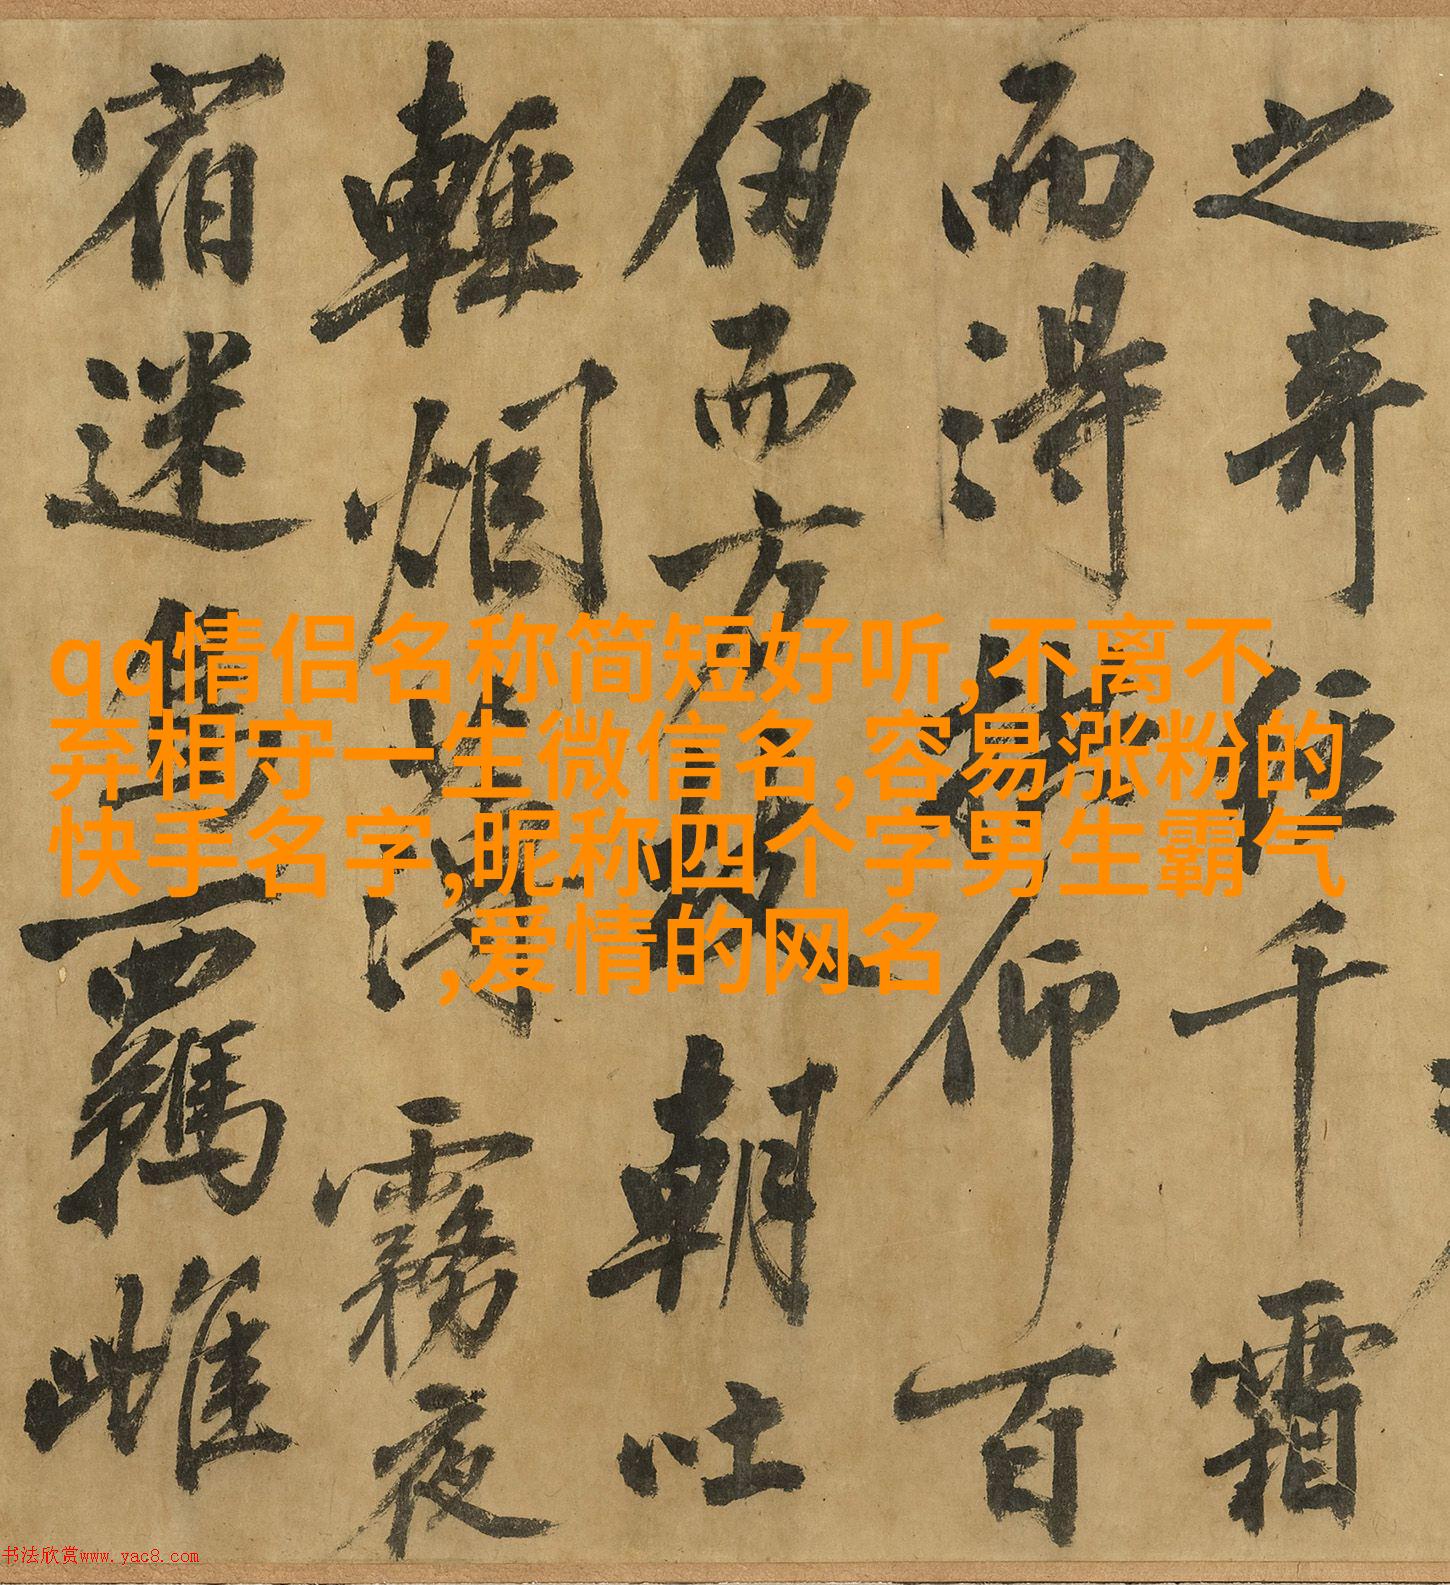 之奇徑千霜
而得拱仰百
仞而方枝朝吐
輕烟薄霧夜
宿迷鳥羈雌
qq情侣名称简短好听,不离不
弃相守一生微信名,容易涨粉的
快手名字,昵称四个字男生霸气
,爱情的网名
书法欣赏www.yac8.com